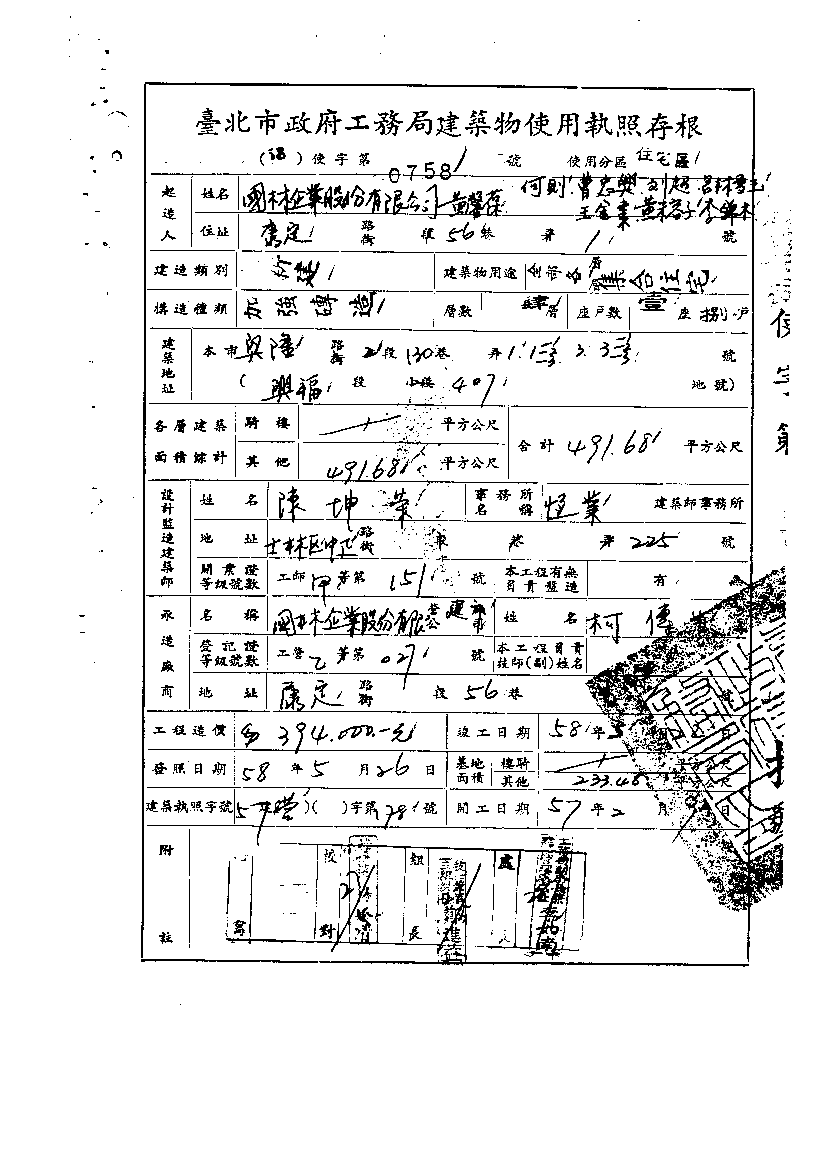 臺北市政府工務局建築物使用執照存根
(58)使字第 0758 號 使用分區 住宅區
起造人 姓名 國林企業股份有限公司 黃馨葆 何則 曹忠興 劉超
住址 康定 路街 段 56 巷 弄 1 號
建造類別 新建 建築物用途 集合住宅
構造種類 加強磚造 層數 肆層 座戶數 壹座 捌戶
建築地址 本市 興隆 路街 2 段 130 巷 弄 1.1 3.3 號
(興福 段 小段 407 地號)
各層建築面積綜計 騎樓 平方公尺 合計 491.68 平方公尺
其他 491.68 平方公尺
設計監造建築師 姓名 陳坤榮 事務所名稱 恆業 建築師事務所
地址 士林區中正 路街 段 巷 弄 225 號
開業證等級號數 工師 甲 等第 151 號 本工程有無負責監造 有 無
承造廠商 名稱 國林企業股份有限公 姓名 柯傳
登記證等級號數 工營 乙 等第 027 號 本工程負責技師(副)姓名
地址 康定 路街 段 56 巷 號
工程造價 394.000.-元 竣工日期 58 年 5 月 20 日
發照日期 58 年 5 月 26 日 基地面積 樓騎 平方公尺
其他 233.46 平方公尺
建築執照字號 ( )字第 78 號 開工日期 57 年 2 月 日
附註 寫 校對 組長 處
使字第